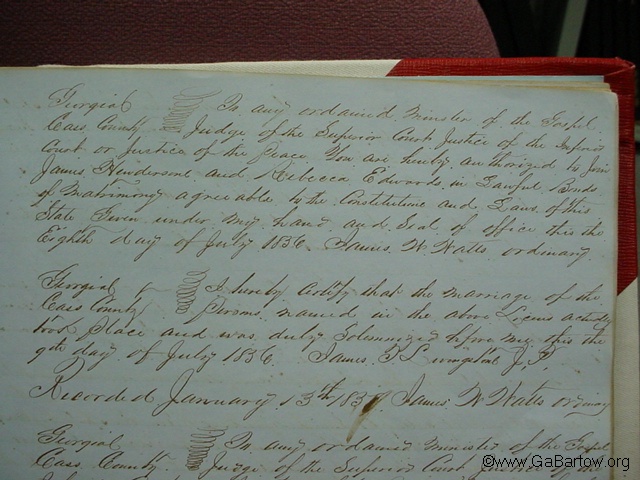 Georgia To any ordained Minister of the Gospel
Cass County Judge of the Superior Court Justice of the Inferior
Court or Justice of the Peace You are hereby authorized to Join
James Henderson and Rebecca Edwards in Lawful Bonds
of Matrimony agreeable to the Constitution and Laws of this
State Given under my hand and Seal of office this the
Eighth day of July 1836 James W Watts ordinary
Georgia I hereby certify that the marriage of the
Cass County Persons named in the above License actually
took Place and was duly Solemnized before me this the
9th day of July 1836 James J.P.
Recorded January 13th James W Watts ordinary
Georgia To any ordained Minister of the Gospel
Cass County Judge of the Superior Court Justice of the
©www.GaBartow.org